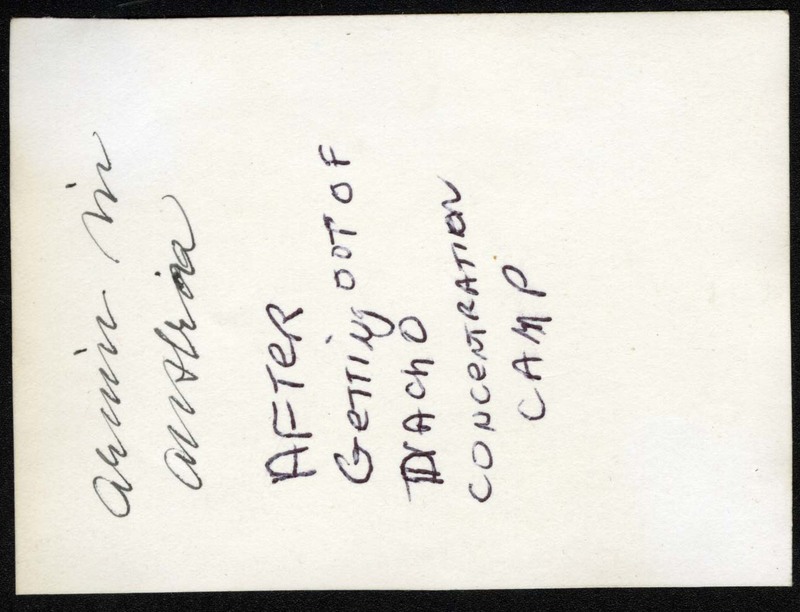 Armin in
Austria
AFTER
GeTTiNg OUT OF
DACHO
CONCeNTRATION
CAMP